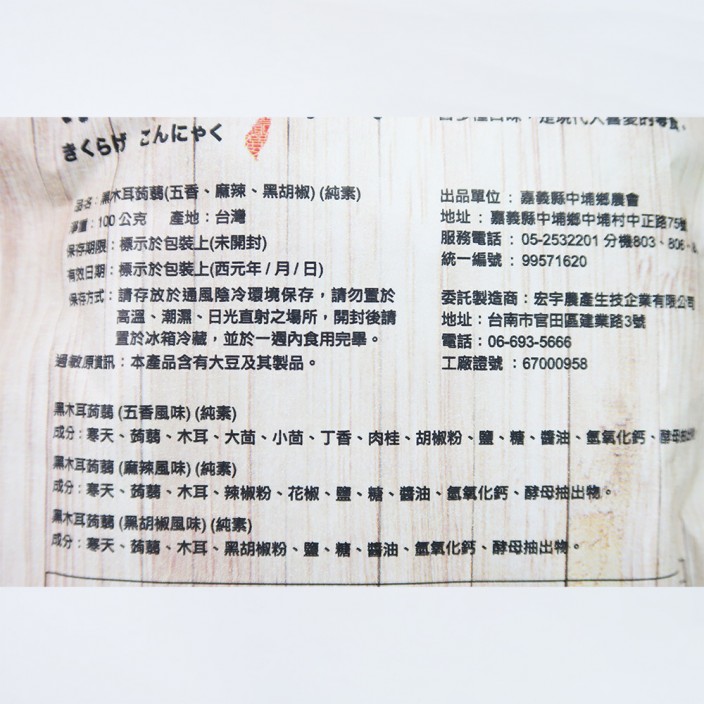 多種口味，是現代人喜愛的零食。
きくらげ こんにゃく
品名：黑木耳蒟蒻(五香、麻辣、黑胡椒) (純素)
淨重：100 公克 產地：台灣
保存期限：標示於包裝上(未開封)
有效日期：標示於包裝上(西元年 / 月 / 日)
保存方式：請存放於通風陰冷環境保存，請勿置於
高溫、潮濕、日光直射之場所，開封後請
置於冰箱冷藏，並於一週內食用完畢。
過敏原資訊：本產品含有大豆及其製品。
出品單位：嘉義縣中埔鄉農會
地址：嘉義縣中埔鄉中埔村中正路75號
服務電話：05-2532201 分機803、806、
統一編號：99571620
委託製造商：宏宇農產生技企業有限公司
地址：台南市官田區建業路3號
電話：06-693-5666
工廠證號：67000958
黑木耳蒟蒻 (五香風味) (純素)
成分：寒天、蒟蒻、木耳、大茴、小茴、丁香、肉桂、胡椒粉、鹽、糖、醬油、氫氧化鈣、酵母抽出
黑木耳蒟蒻 (麻辣風味) (純素)
成分：寒天、蒟蒻、木耳、辣椒粉、花椒、鹽、糖、醬油、氫氧化鈣、酵母抽出物。
黑木耳蒟蒻 (黑胡椒風味) (純素)
成分：寒天、蒟蒻、木耳、黑胡椒粉、鹽、糖、醬油、氫氧化鈣、酵母抽出物。